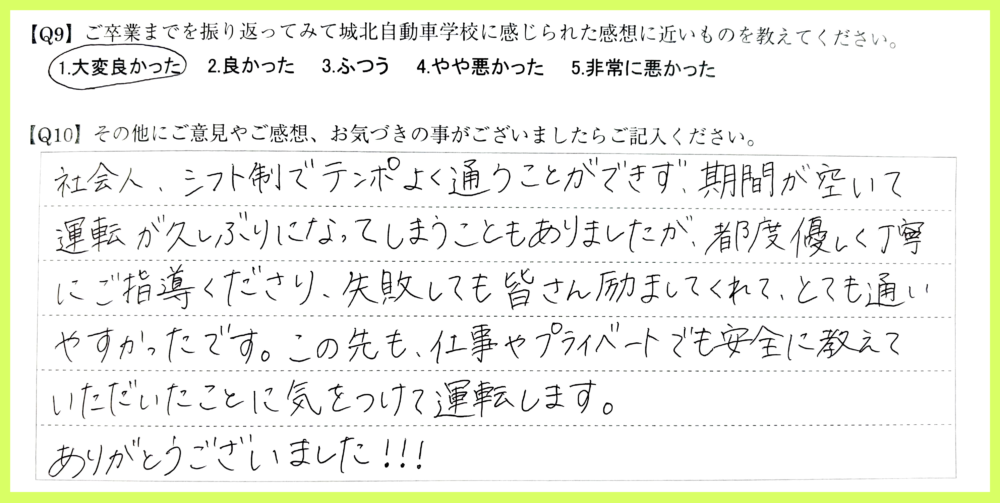 【Q9】ご卒業までを振り返ってみて城北自動車学校に感じられた感想に近いものを教えてください。
1.大変良かった 2.良かった 3.ふつう 4.やや悪かった 5.非常に悪かった
【Q10】その他にご意見やご感想、お気づきの事がございましたらご記入ください。
社会人、シフト制でテンポよく通うことができず、期間が空いて
運転が久しぶりになってしまうこともありましたが、都度優しく丁寧
にご指導くださり、失敗しても皆さん励ましてくれて、とても通い
やすかったです。この先も、仕事やプライベートでも安全に教えて
いただいたことに気をつけて運転します。
ありがとうございました!!!